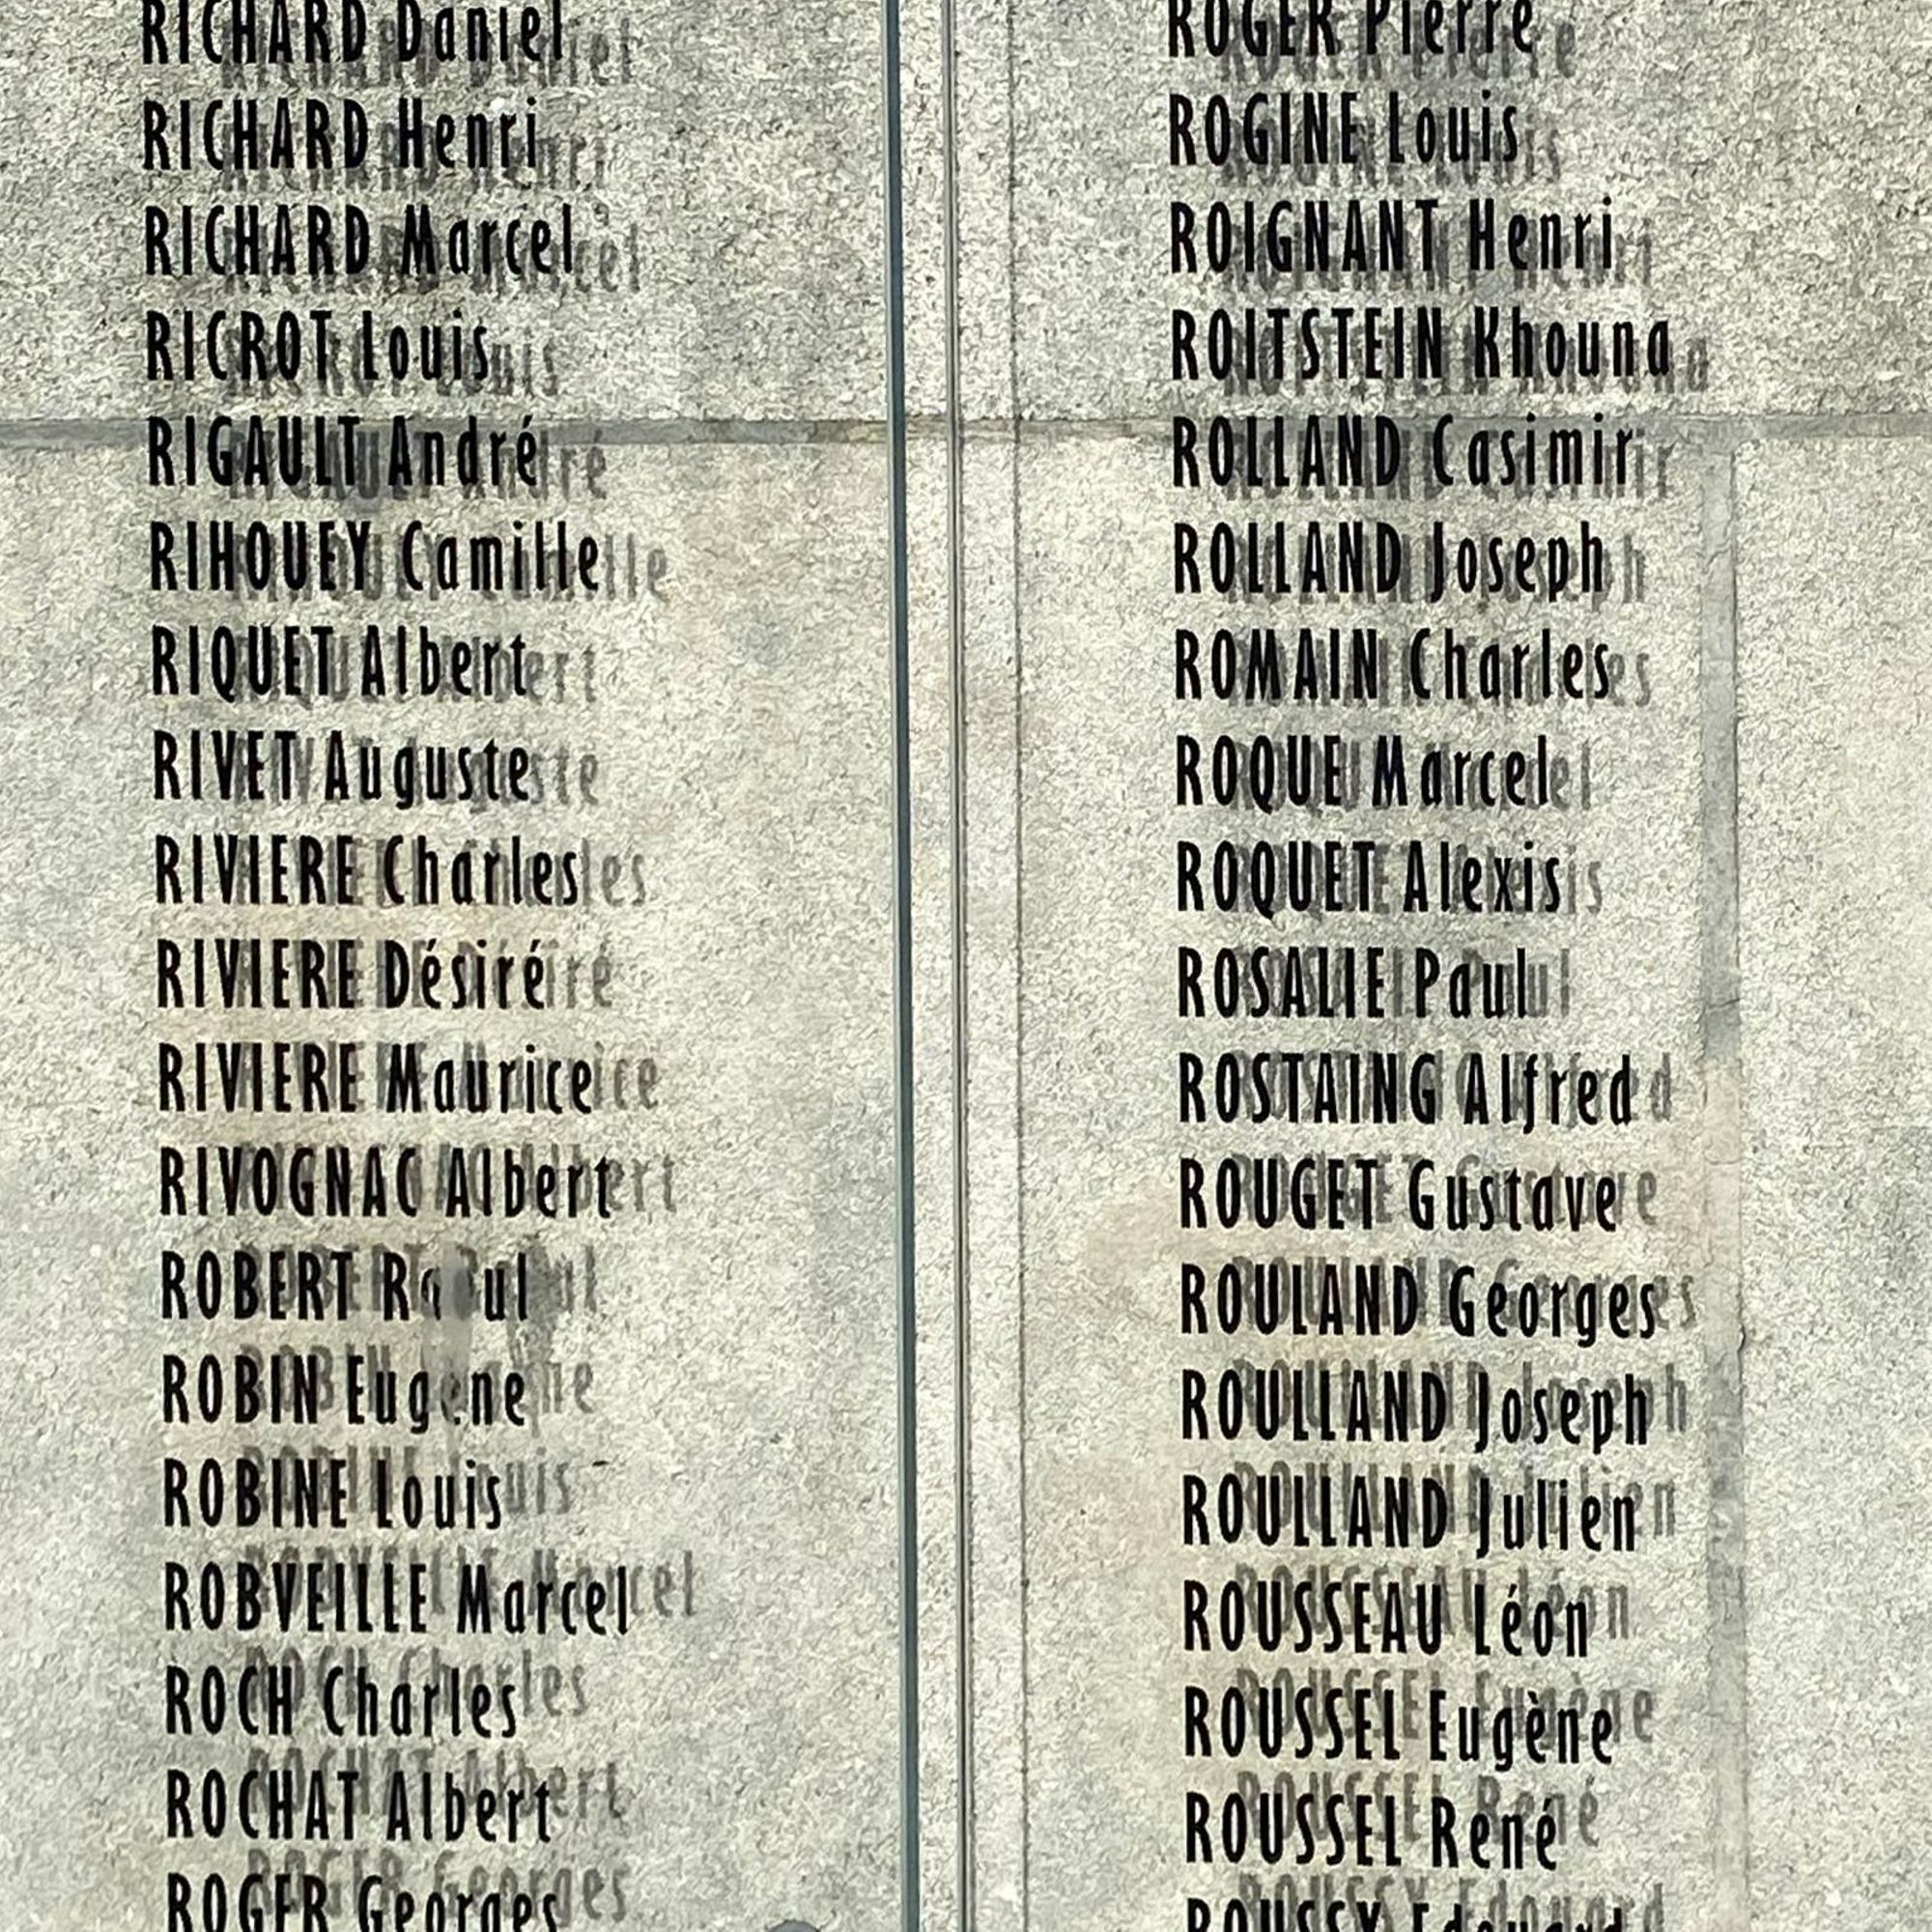 RICHARD Daniel
RICHARD Henri
RICHARD Marcel
RICROT Louis
RIGAULT André
RIHOUEY Camille
RIQUET Albert
RIVET Auguste
RIVIERE Charles
RIVIERE Désiré
RIVIERE Maurice
RIVOGNAC Albert
ROBERT Raoul
ROBIN Eugene
ROBINE Louis
ROBVEILLE Marcel
ROCH Charles
ROCHAT Albert
ROGER Georges
ROGER Pierre
ROGINE Louis
ROIGNANT Henri
ROITSTEIN Khouna
ROLLAND Casimir
ROLLAND Joseph
ROMAIN Charles
ROQUE Marcel
ROQUET Alexis
ROSALIE Paul
ROSTAING Alfred
ROUGET Gustave
ROULAND Georges
ROULLAND Joseph
ROULLAND Julien
ROUSSEAU Léon
ROUSSEL Eugène
ROUSSEL René
ROUSSY Edouard